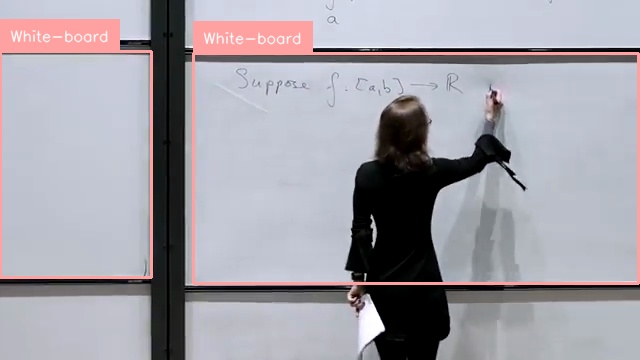 a
White-board
White-board
Suppose f : [a,b] → ℝ